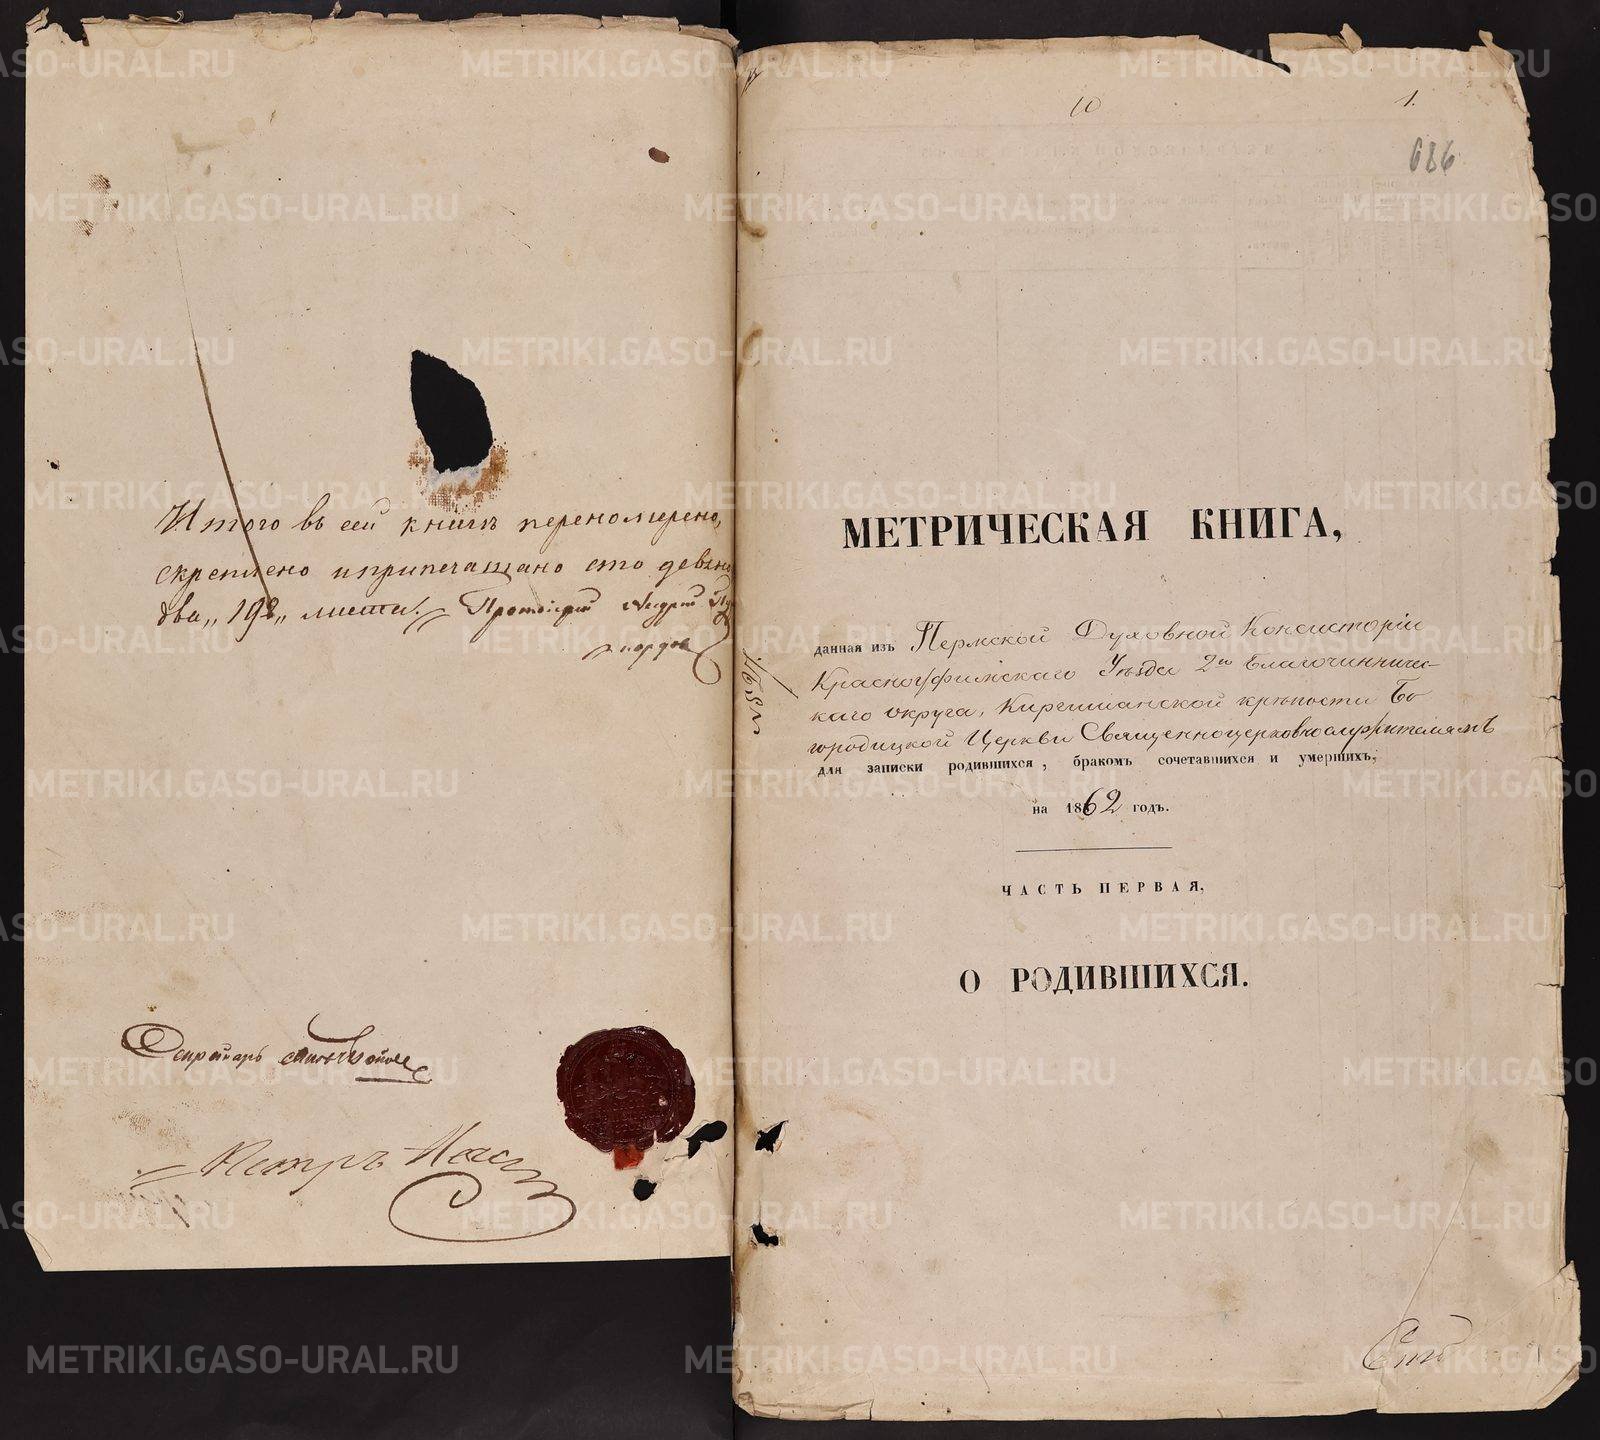 Итого въ сей книгѣ перономерено,
скреплено и припечатано сто девяно
два „192„ листа. Протоіерей Андрей
Секретарь
Петръ
10
1.
686
МЕТРИЧЕСКАЯ КНИГА,
данная изъ Пермской Духовной Консисторіи
Красноуфимскаго Уѣзда 2го Благочинничес-
каго округа, Киргишанской крѣпости Бо
городицкой Церкви Священноцерковнослужителямъ
для записки родившихся, бракомъ сочетавшихся и умершихъ,
на 1862 годъ.
ЧАСТЬ ПЕРВАЯ,
О РОДИВШИХСЯ.
METRIKI.GASO-URAL.RU